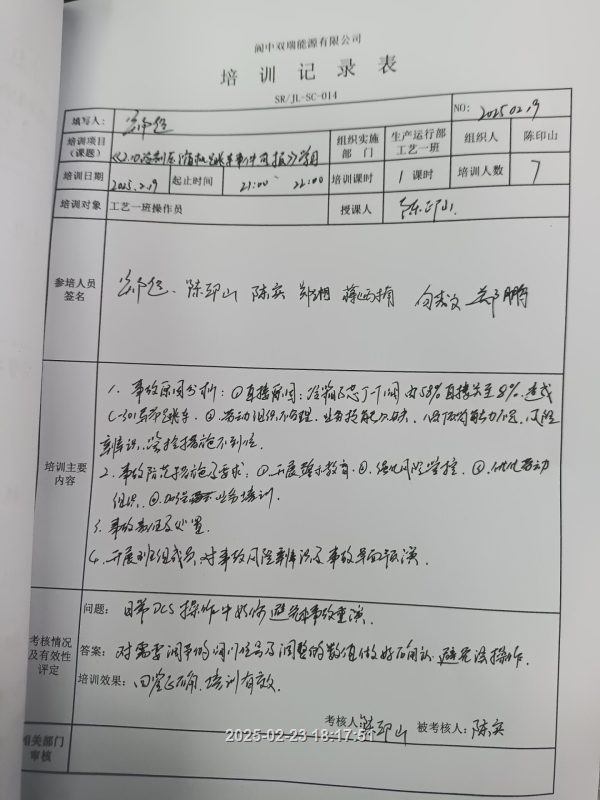 阆中双瑞能源有限公司
培训记录表
SR/JL-SC-014
NO: 20250219
填写人:
培训项目(课题) 跳车事件 学习 组织实施部门 生产运行部工艺一班 组织人 陈印山
培训日期 2025.2.19 起止时间 21:00 22:00 培训课时 1课时 培训人数 7
培训对象 工艺一班操作员 授课人 陈印山
参培人员签名 陈印山 陈实 郑鹏
培训主要内容
1、事故原因分析:①直接原因:冷箱 J-T阀由58%直接关至8%,造成
C-301 跳车。②劳动组织不合理,业务技能欠缺, 能力不足,风险
辨识、管控措施不到位。
2、事故防范措施及要求:①开展警示教育。②强化风险管控。③优化劳动
组织。④加强业务培训。
3、事故责任及处置。
4、开展班组成员对事故风险辨识及事故 演。
考核情况及有效性评定
问题: 日常DCS操作中如何避免事故重演。
答案: 对需要调节的阀门位号及调整的数值做好确认,避免误操作。
培训效果: 回答正确,培训有效。
考核人:陈印山 被考核人:陈实
2025-02-23 18:17:51
相关部门审核